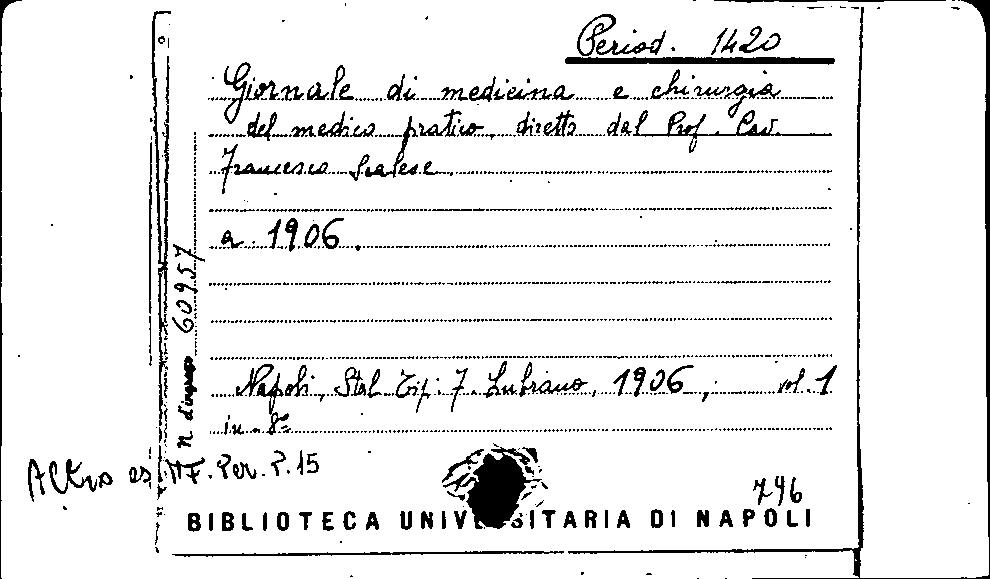 Period. 1420
Giornale di medicina e chirurgia
del medico pratico, diretto dal Prof. Cav.
Francesco Scalese.
a. 1906.
n. d'ingresso 60957
Napoli, Stab. Tip. F. Lubrano, 1906, vol. 1
in-8º
Altro es. F. Per. P. 15
796
BIBLIOTECA UNIVERSITARIA DI NAPOLI